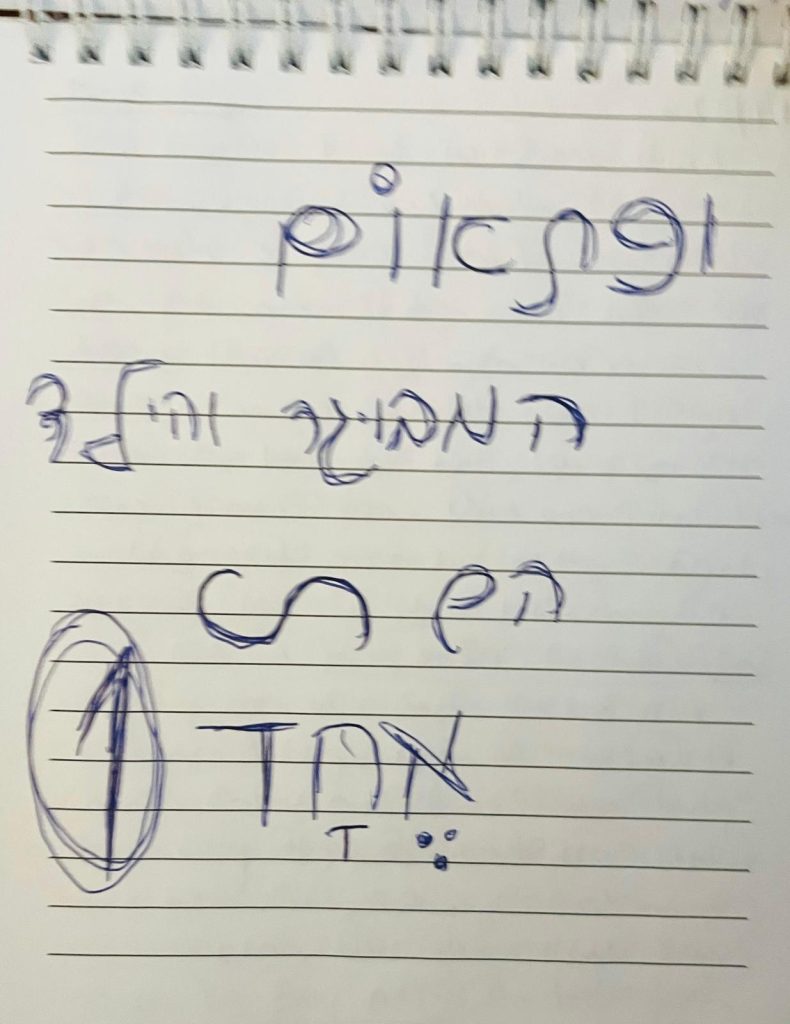 ופתאוֹם
המבוגר והילד
הם ~
אֶחָד ↑